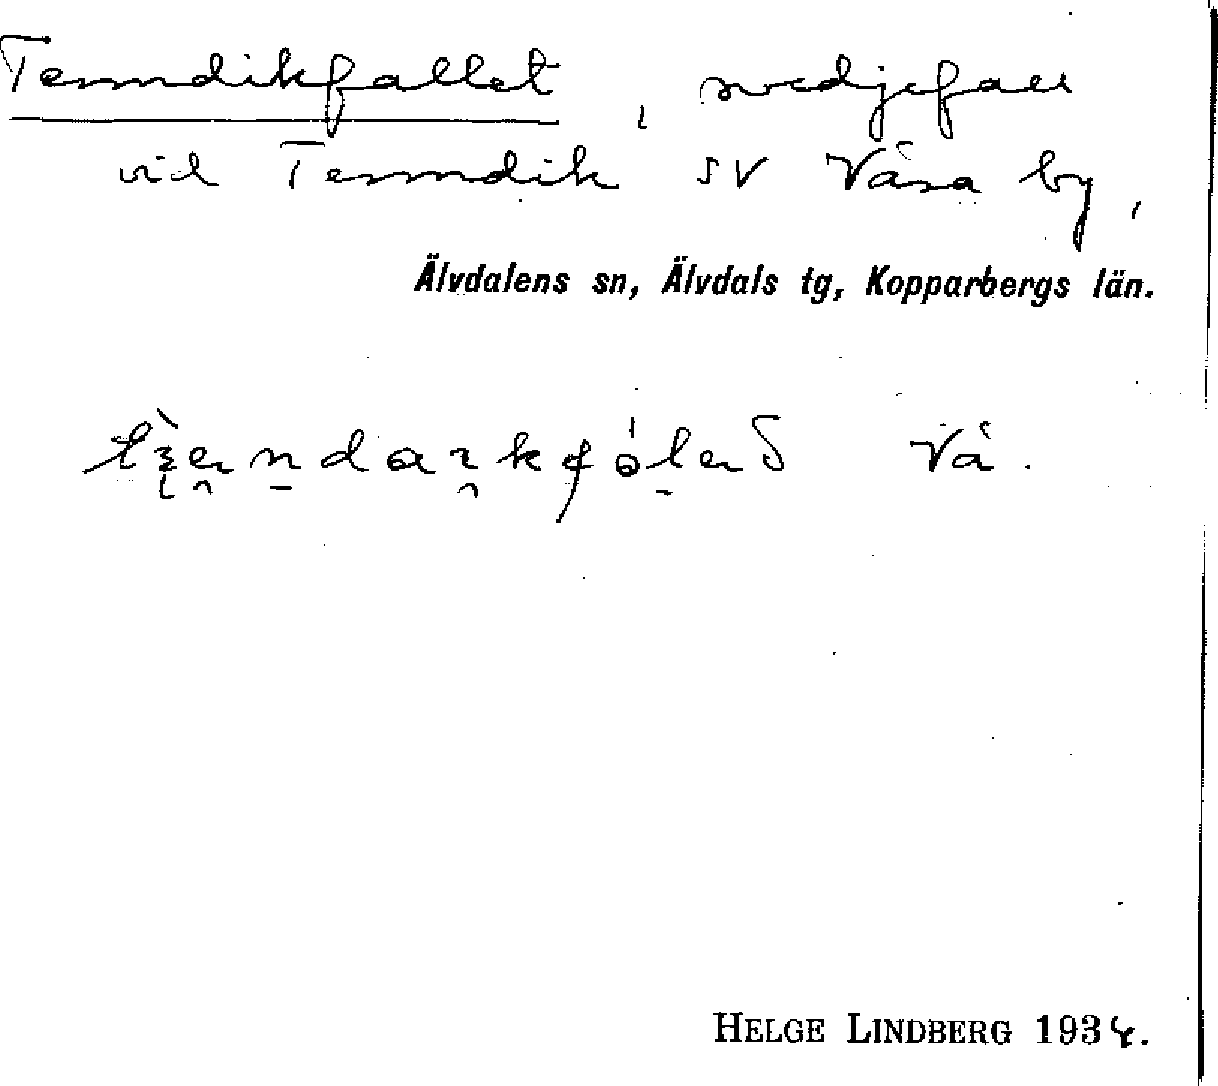 Tenndikfallet, svedjefall
vid Tenndik SV Våsa by,
Älvdalens sn, Älvdals tg, Kopparbergs län.
Vå.
HELGE LINDBERG 1934.